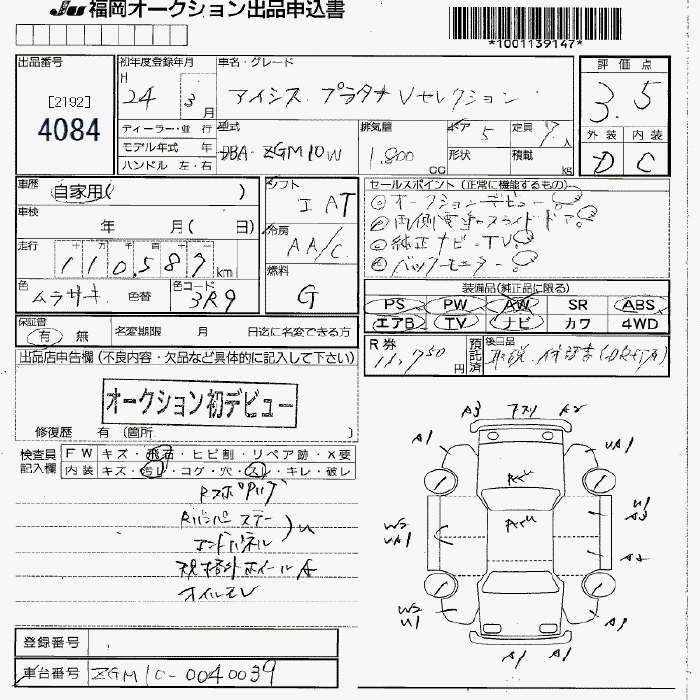 JU 福岡オークション出品申込書
*1001139147*
出品番号
[2192]
4084
初年度登録年月
H 24 3 月
車名・グレード
アイシス プラタナ Vセレクション
評価点
3.5
外装 内装
D C
ディーラー・並行
モデル年式 年
ハンドル 左・右
型式
DBA-ZGM10W
排気量
1,800 CC
ドア 5
形状
定員 7 人
積載 kg
車歴 自家用( )
車検 年 月( 日)
走行 十 万 千 百 十 一
110,587 km
色 ムラサキ 色替
色コード 3R9
シフト
I AT
冷房
AA/C
燃料
G
セールスポイント(正常に機能するもの)
オークションデビュー
両側電動スライドドア
純正ナビ・TV
バックモニター
装備品(純正品に限る)
PS PW AW SR ABS
エアB TV ナビ カワ 4WD
保証書
有 無
名変期限 月 日迄に名変できる方
R券
11,750 円
預託済
後日品
取説、保証書
出品店申告欄(不良内容・欠品など具体的に記入して下さい)
オークション初デビュー
修復歴 有(箇所 )
検査員記入欄
FW キズ・飛石・ヒビ割・リペア跡・X要
内装 キズ・汚レ・コゲ・穴・スレ・キレ・破レ
エンドパネル
規格外ホイール A
オイルモレ
A3 A2
A1 UA1
U1
A3
W2
UA1
A2
W2
U1
A1
A1 A1
登録番号
車台番号 ZGM10-0040039